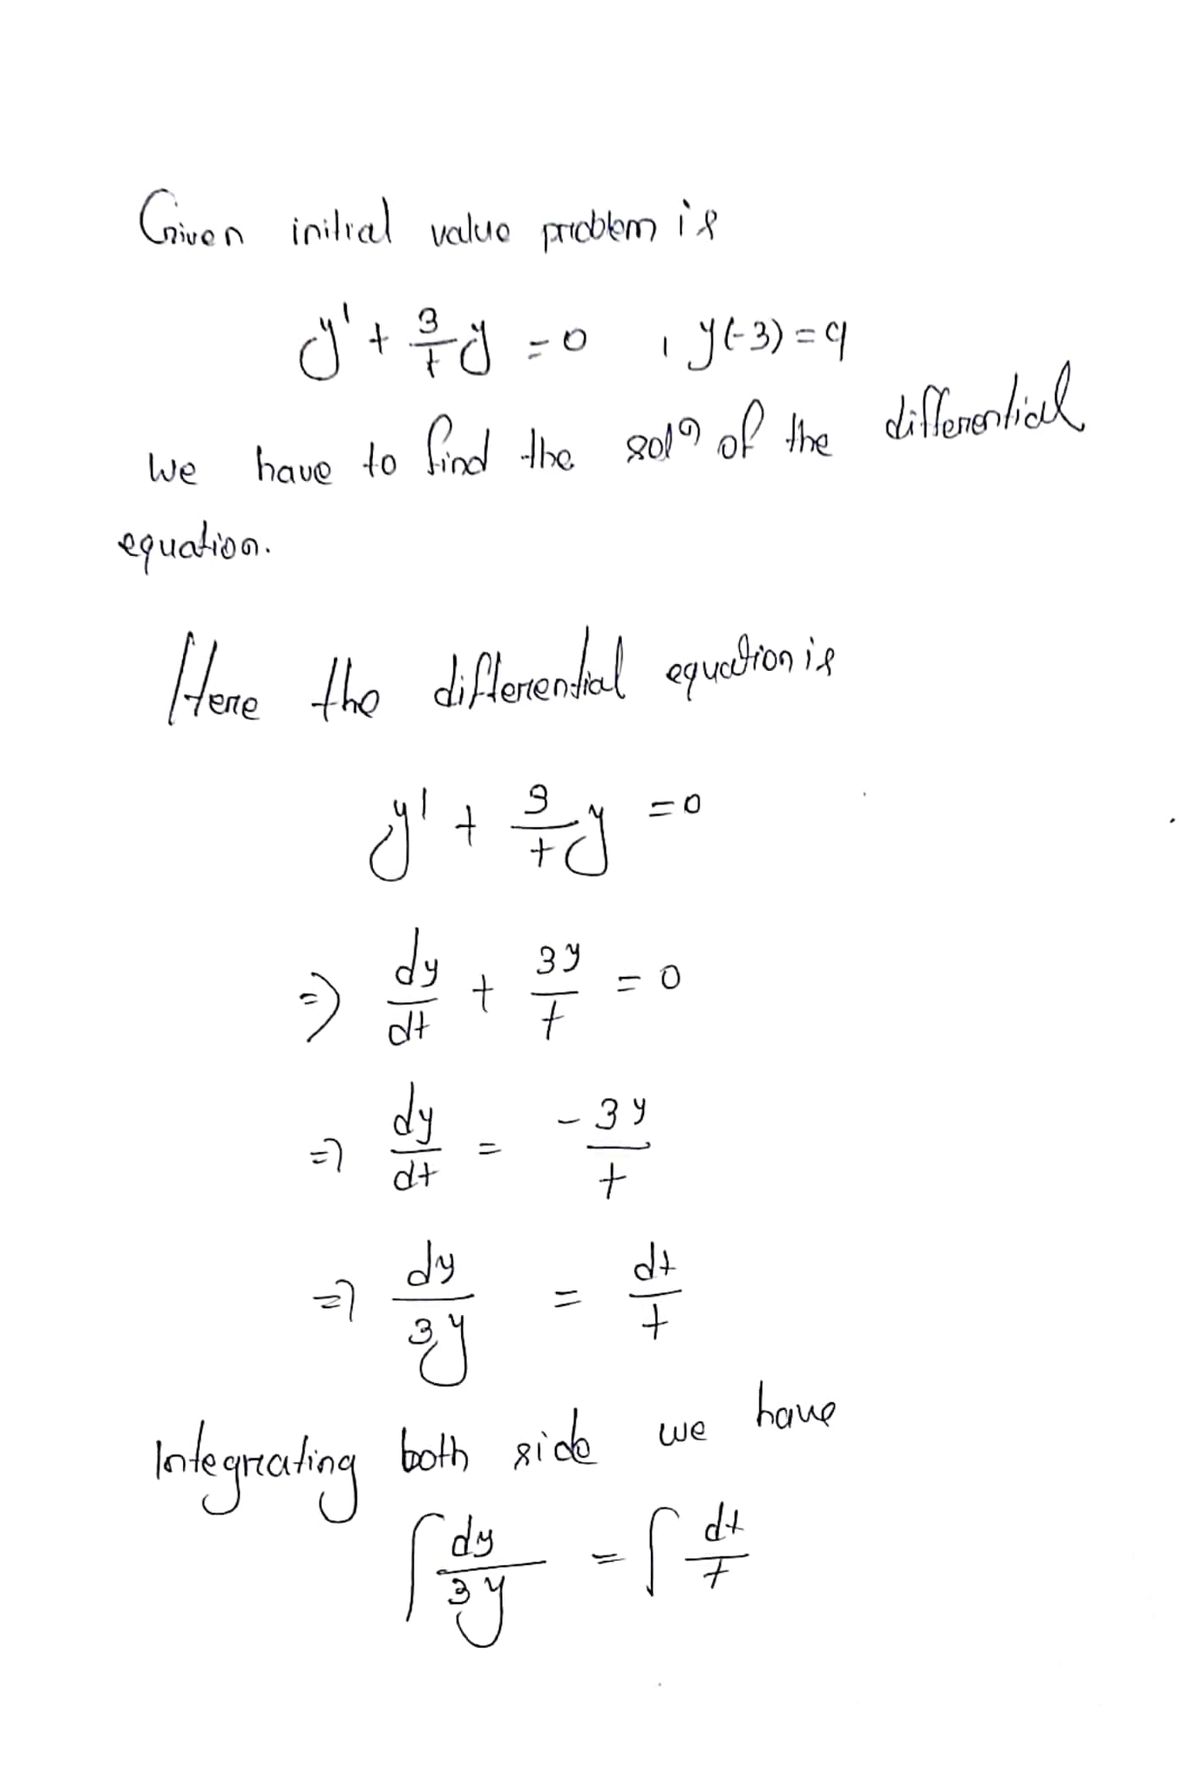 Given initial value problem is
y' + 3/t y = 0 , y(-3) = 9
we have to find the solⁿ of the differential
equation.
Here the differential equation is
y' + 3/t y = 0
=> dy/dt + 3y/t = 0
=> dy/dt = -3y/t
=> dy/3y = dt/t
Integrating both side we have
∫ dy/3y = ∫ dt/t